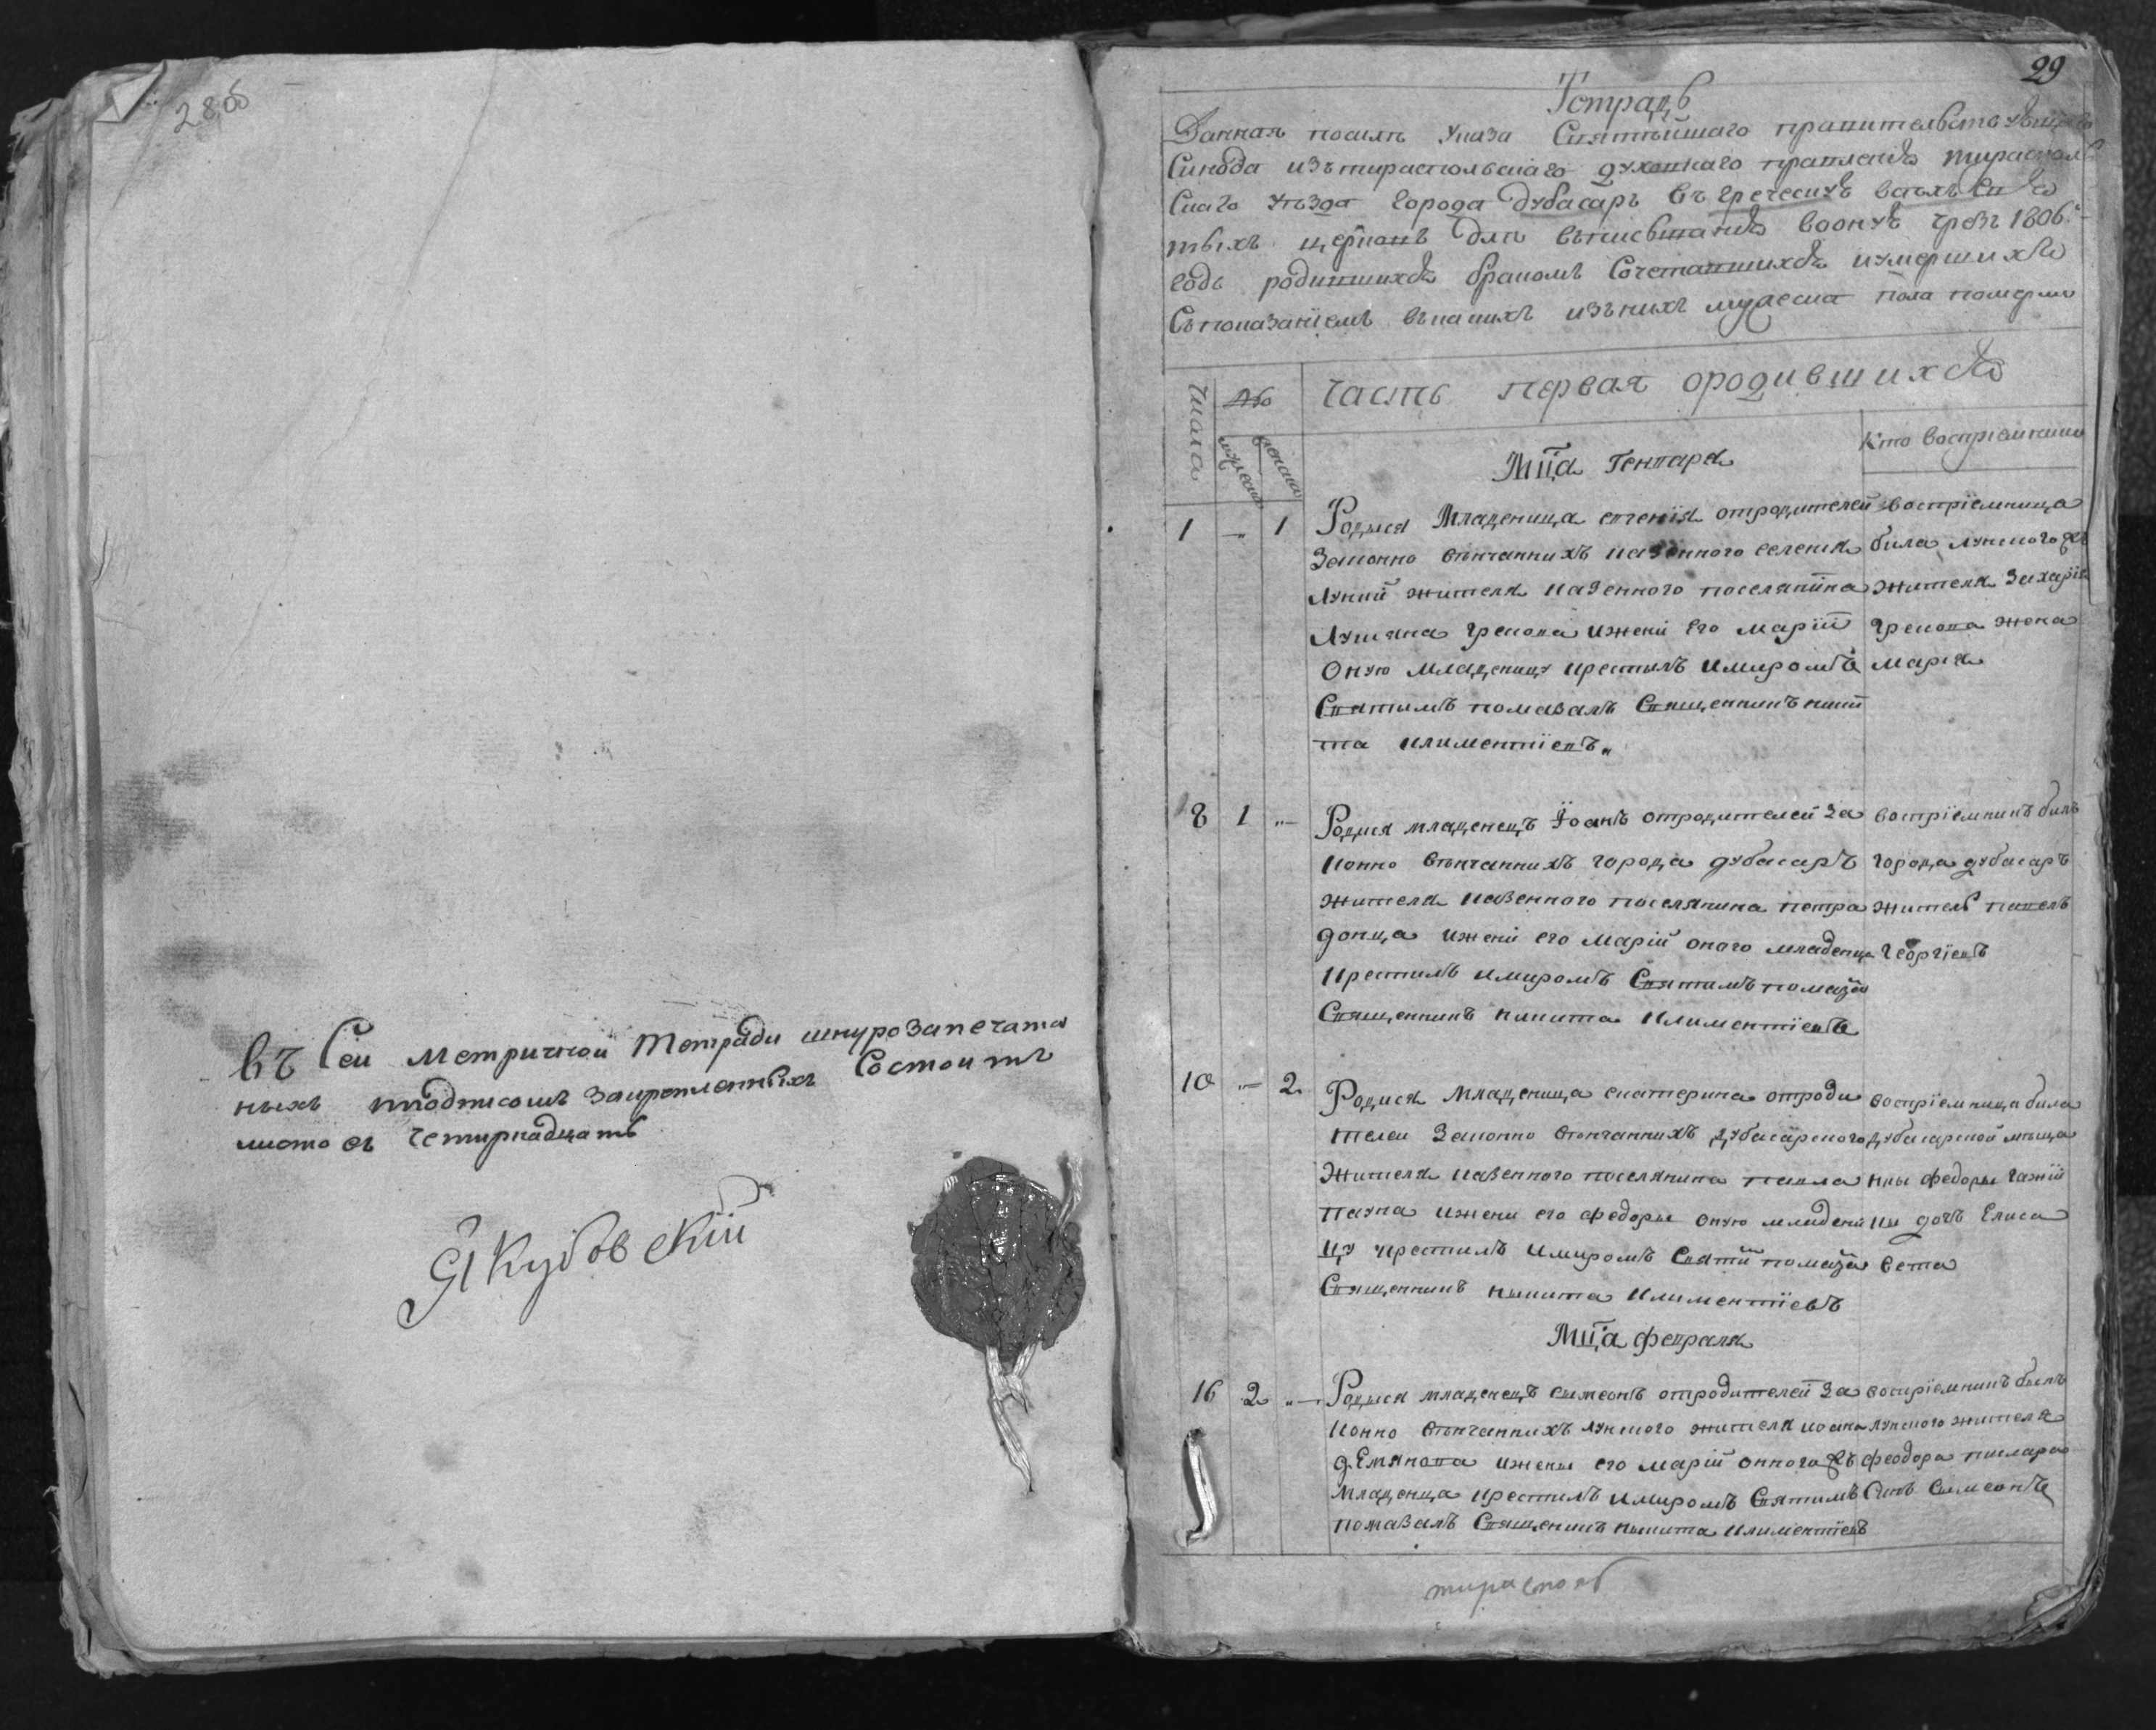 28об
Въ сей метричной тетради шнурозапечата
ныхъ подписомъ закрепленныхъ состоитъ
листовъ четирнадцать
Якубовскій
29
Тетрадь
Данная посилѣ указа Святѣйшаго правительствующаго
Синода изътираспольскаго духовнаго правленія тирасполь
скаго уѣзда города дубасаръ въ греческую всѣхъ свя
тыхъ церковь для вписыванія воону чрезъ 1806й
годъ родившихся бракомъ сочетавшихся иумершихся
съпоказаніемъ изъникъ мужеска пола померло
числа
№
мужеска
женска
часть первая ородившихся
Кто восприемники
Мца Генваря
1 „ 1 Родися младеница евгенія отродителей
законно вѣнчаннихъ казенного селенія
лунки жителя казенного поселянина
лукяна грекова ижени его маріи
оную младеницу крестилъ имиромъ
святимъ помазалъ священникъ ники
та климентіевъ„
восприемница
била лункого же
жителя захарія
грекова жена
марія
8 1 „ Родися младенецъ іоанъ отродителей за
конно вѣнчаннихъ города дубасаръ
жителя казенного поселянина петра
донца ижени его маріи оного младенца
крестилъ имиромъ святимъ помазал
священникъ никита климентіевъ
восприемникъ билъ
города дубасаръ
житель павелъ
георгіевъ
10 „ 2 Родися младеница екатерина отроди
телей законно вѣнчаннихъ дубасарского
жителя казенного поселянина павла
пауна ижени его федоры оную младени
цу крестилъ имиромъ святи помаза
священникъ никита климентіевъ
восприемница била
дубасарской мѣща
нки федоры гажій
ки дочь Елиса
вета
Мца февраля
16 2 „ Родися младенецъ симеонъ отродителей за
конно вѣнчаннихъ лункого жителя иоана
дЕмянова ижены его маріи онного же
младенца крестилъ имиромъ святимъ
помазалъ священикъ никита климентіевъ
восприемникъ былъ
лункого жителя
феодора пислара
синъ симеонъ
тирасполь